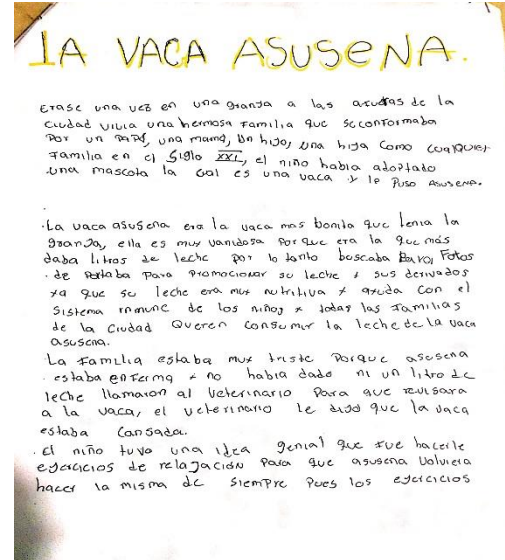 LA VACA ASUSENA.
Erase una vez en una granja a las afueras de la
ciudad vivia una hermosa familia que se conformaba
Por un papá, una mamá, un hijo, una hija como cualquier
familia en el Siglo XXI, el niño habia adoptado
una mascota la cal es una vaca y le puso Asusena.
.La vaca asusena era la vaca mas bonita que tenia la
granja, ella es muy vanidosa por que era la que más
daba litros de leche por lo tanto buscaba para Fotos
de Portaba para promocionar su leche y sus derivados
ya que su leche era muy nutritiva y ayuda con el
sistema inmune de los niños y todas las familias
de la ciudad Queren consumir la leche de la vaca
asusena.
La familia estaba muy triste porque asusena
estaba enferma y no habia dado ni un litro de
leche llamaron al veterinario para que revisara
a la vaca, el veterinario le dijo que la vaca
estaba cansada.
.El niño tuvo una idea genial que fue hacerle
ejercicios de relajación para que asusena volviera
hacer la misma de siempre pues los ejercicios